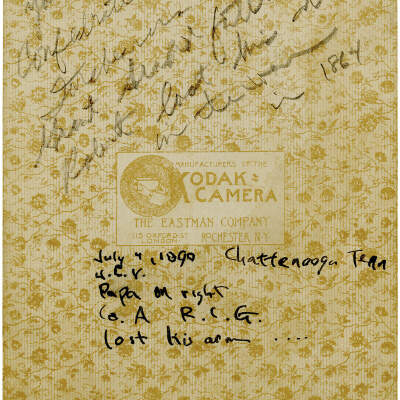 Confederate
lost his
in the war
in 1864
MANUFACTURERS OF THE
KODAK
CAMERA
THE EASTMAN COMPANY
115 OXFORD ST
LONDON
ROCHESTER N.Y.
July 4, 1890 Chattenooga Tenn
U.C.V.
Papa on right
Co. A R.C.G.
lost his arm ....